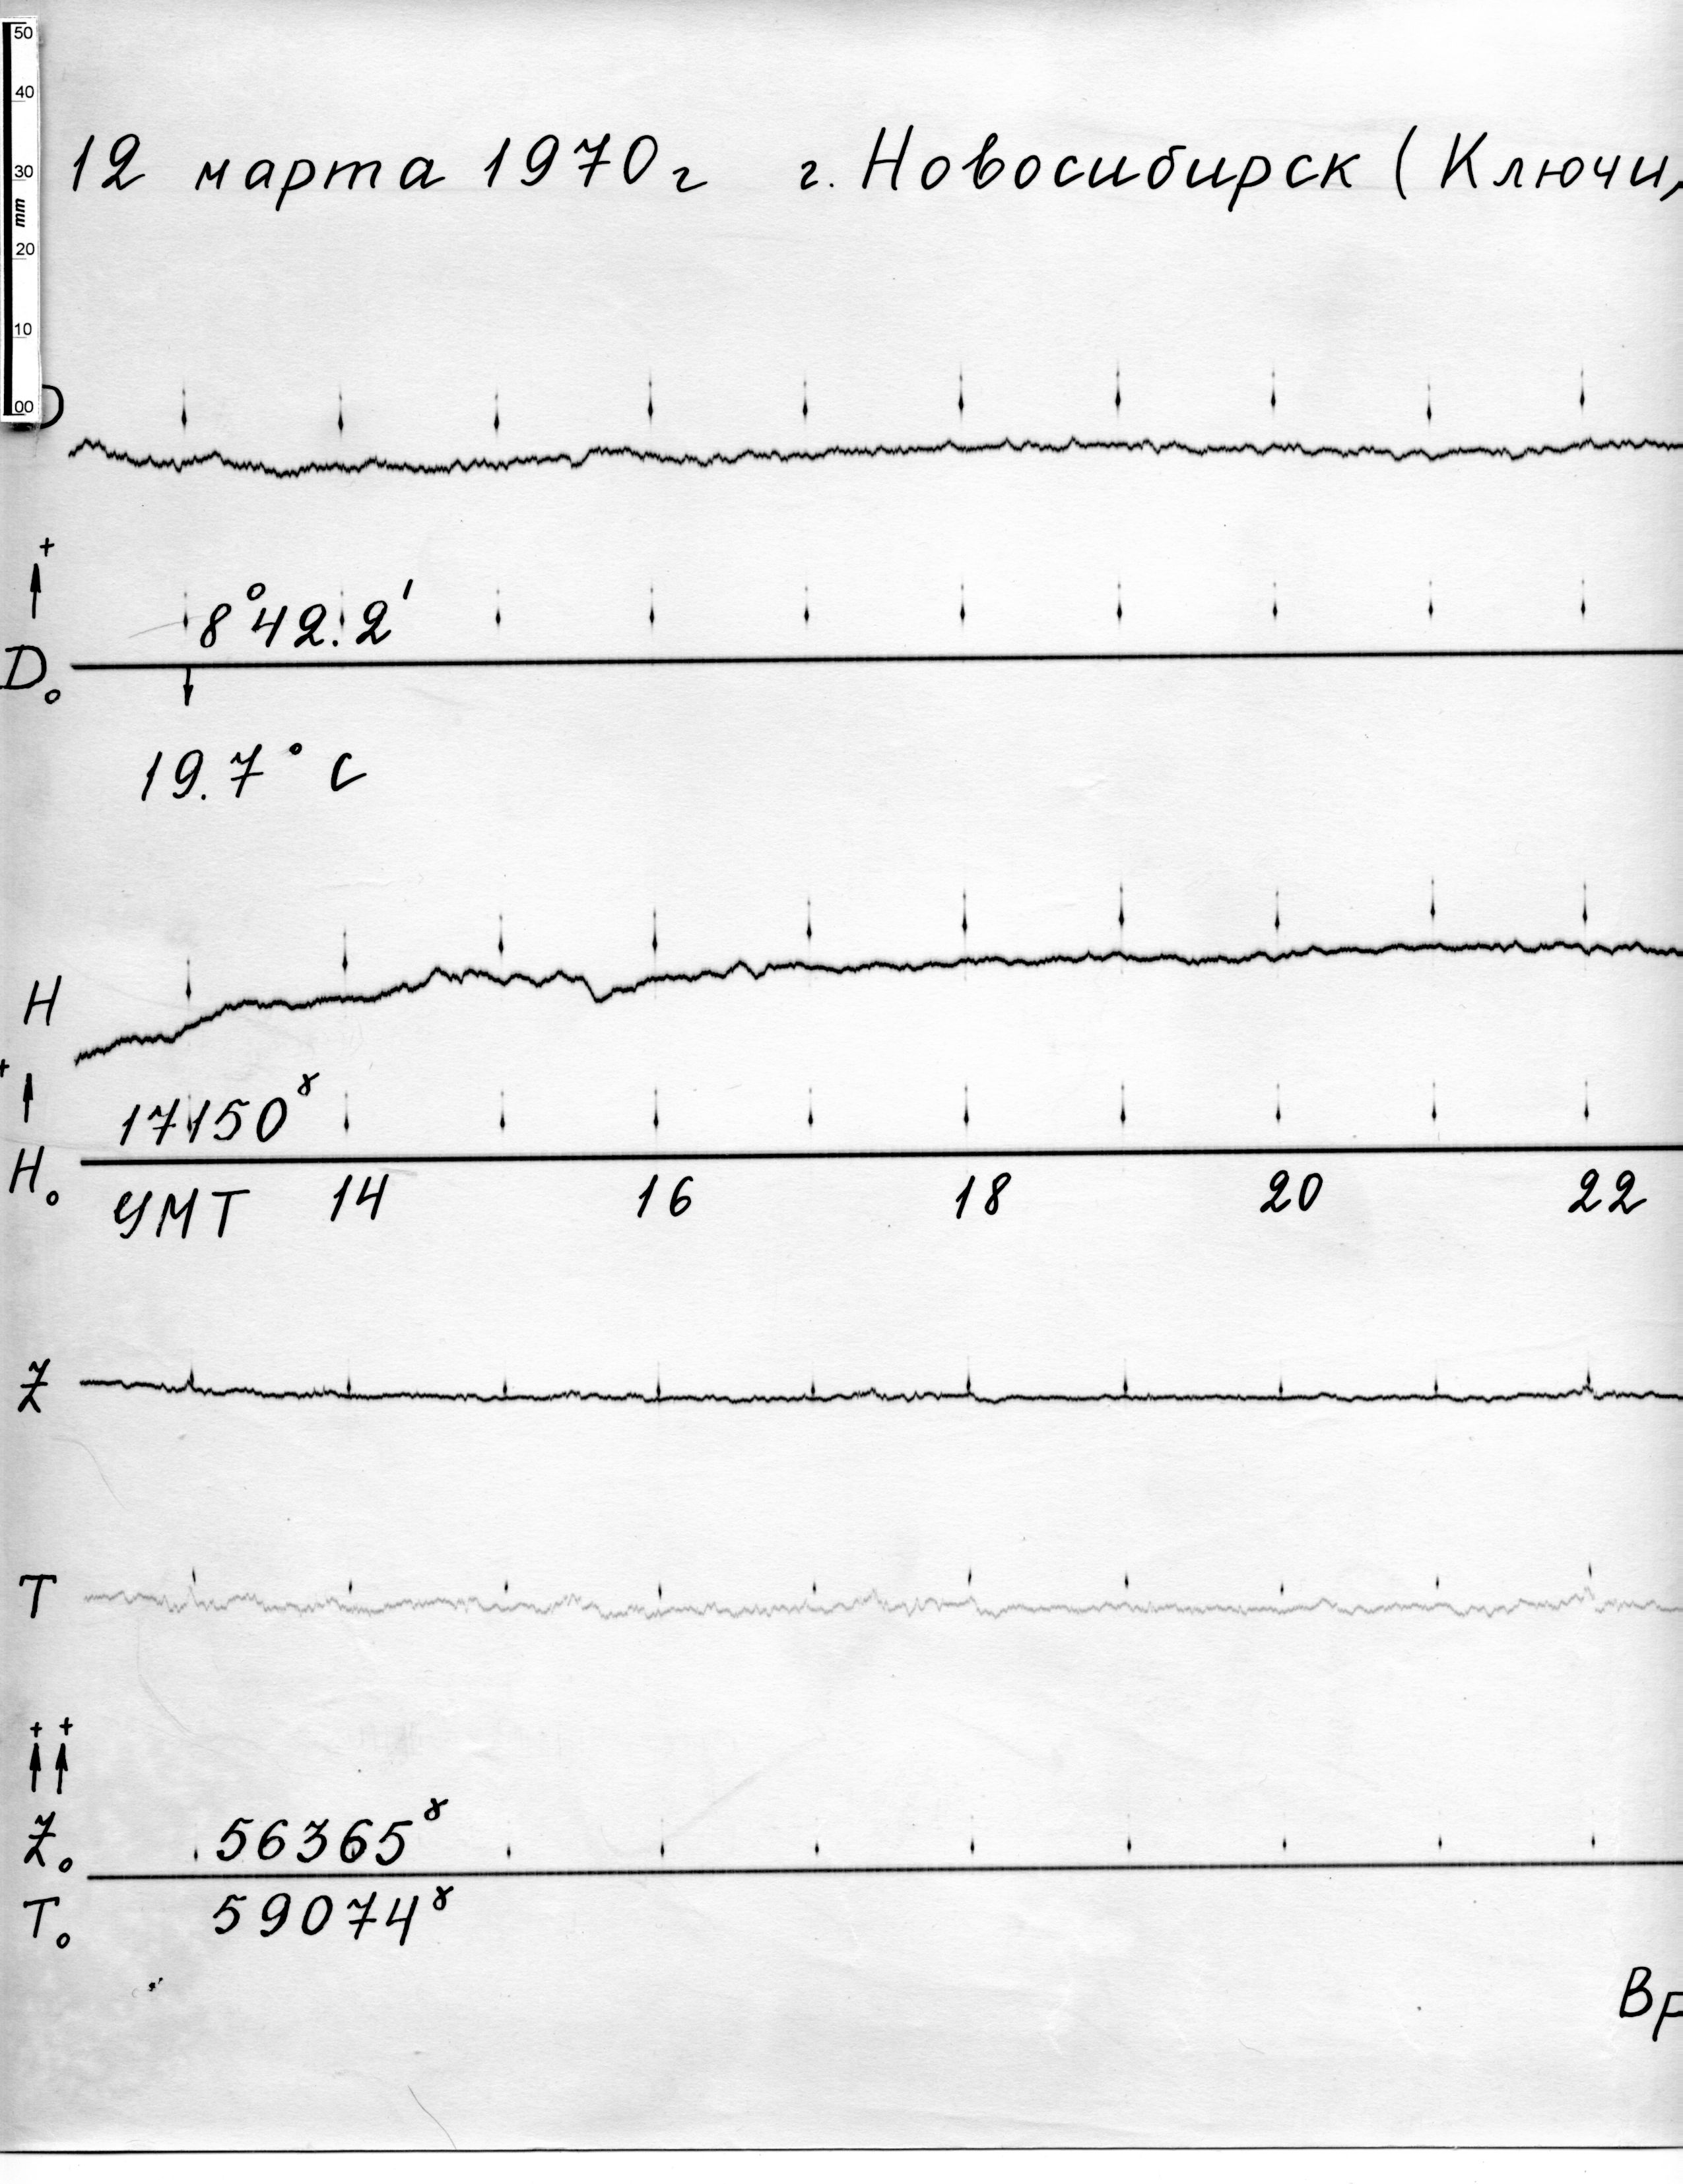 50
40
30
mm
20
10
00
12 марта 1970г г. Новосибирск (Ключи,
D
+
8°42.2'
D₀
19.7° C
H
+
17150ᵞ
H₀
УМТ 14 16 18 20 22
Z
T
+ +
Z₀ 56365ᵞ
T₀ 59074ᵞ
Вр